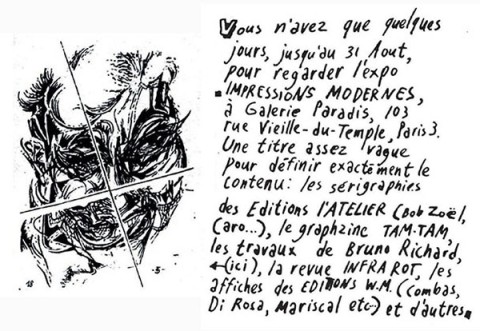 Vous n'avez que quelques
jours, jusqu'au 31 Aout,
pour regarder l'expo
IMPRESSIONS MODERNES,
à Galerie Paradis, 103
rue Vieille-du-Temple, Paris 3.
Une titre assez vague
pour définir exactement le
contenu: les sérigraphies
des Editions l'ATELIER (Bob Zoël,
Caro...), le graphzine TAM-TAM,
les travaux de Bruno Richard,
←(ici), la revue INFRAROT, les
affiches des EDITIONS W.M. (Combas,
Di Rosa, Mariscal etc-) et d'autres.
18 -5-